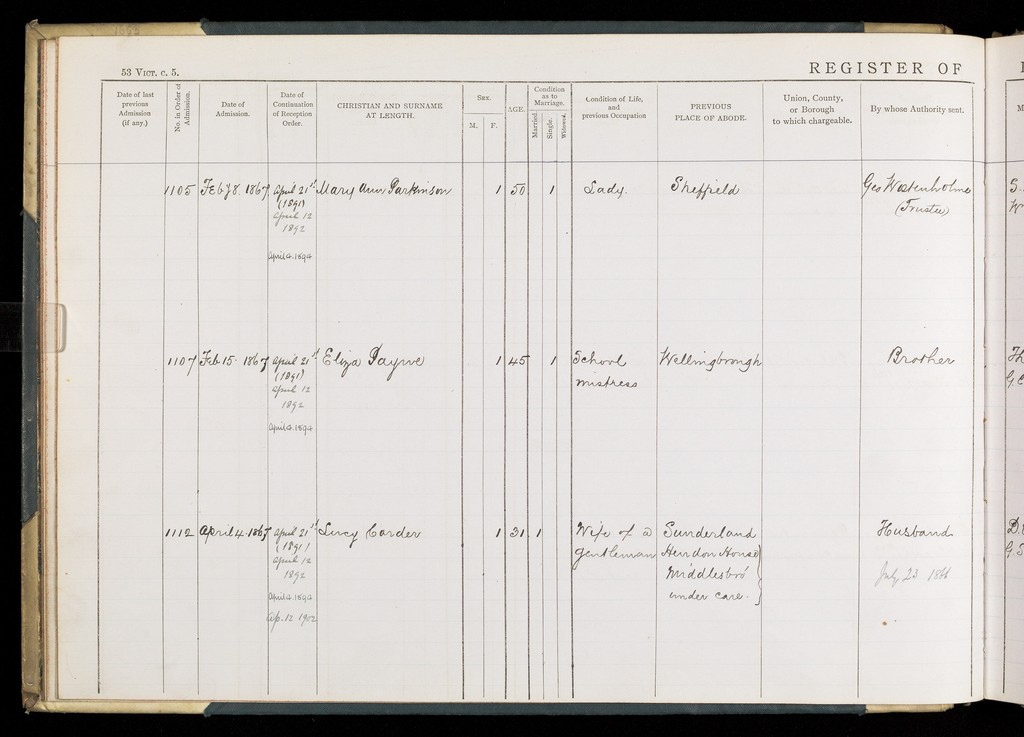 53 VICT. c. 5.
REGISTER OF
Date of last
previous
Admission
(if any.)
No. in Order of
Admission.
Date of
Admission.
Date of
Continuation
of Reception
Order.
CHRISTIAN AND SURNAME
AT LENGTH.
SEX.
M. F.
AGE.
Condition
as to
Marriage.
Married.
Single.
Widowed.
Condition of Life,
and
previous Occupation
PREVIOUS
PLACE OF ABODE.
Union, County,
or Borough
to which chargeable.
By whose Authority sent.
1105 Feby 8. 1867 April 21st Mary Ann Parkinson 1 50 1 Lady. Sheffield Geo Wostenholme
(1891) (Trustee)
April 12
1892
April 4. 1894
1107 Feb 15. 1867 April 21st Eliza Payne 1 45 1 School Wellingborough Brother
(1891) mistress
April 12
1892
April 4. 1894
1112 April 4. 1867 April 21st Lucy Corder 1 31 1 Wife of a Sunderland Husband
(1891) gentleman Hendon House
April 12 Middlesbro' July 23 1866
1892
April 4. 1894 under care.
Ap. 12 1902